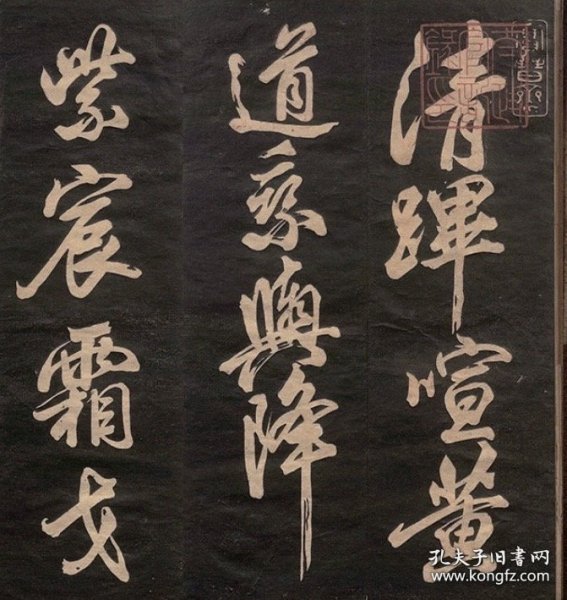 清蹕喧黄
道乘輿降
紫宸霜戈
孔夫子旧书网
www.kongfz.com